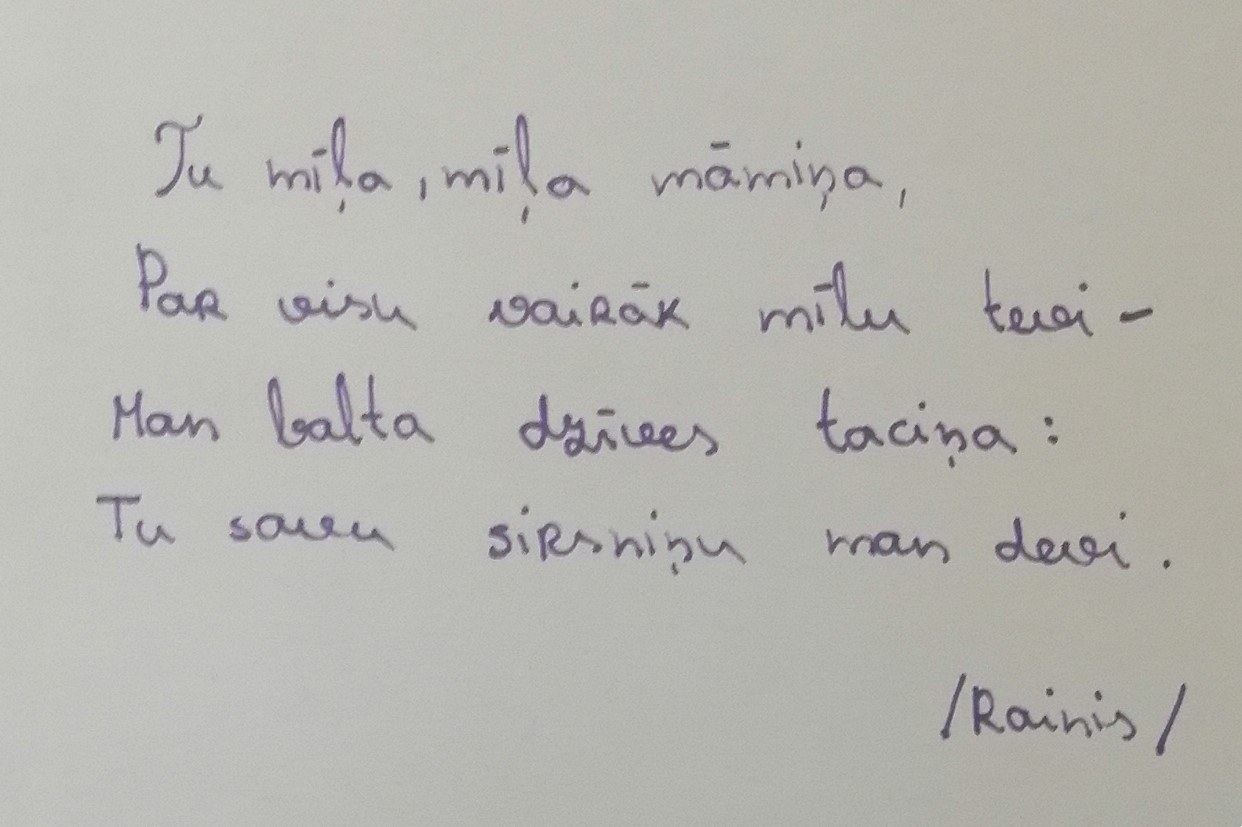 Tu mīļa, mīļa māmiņa,
Par visu vairāk mīlu tevi -
Man balta dzīves taciņa:
Tu savu sirsniņu man devi.
/Rainis/